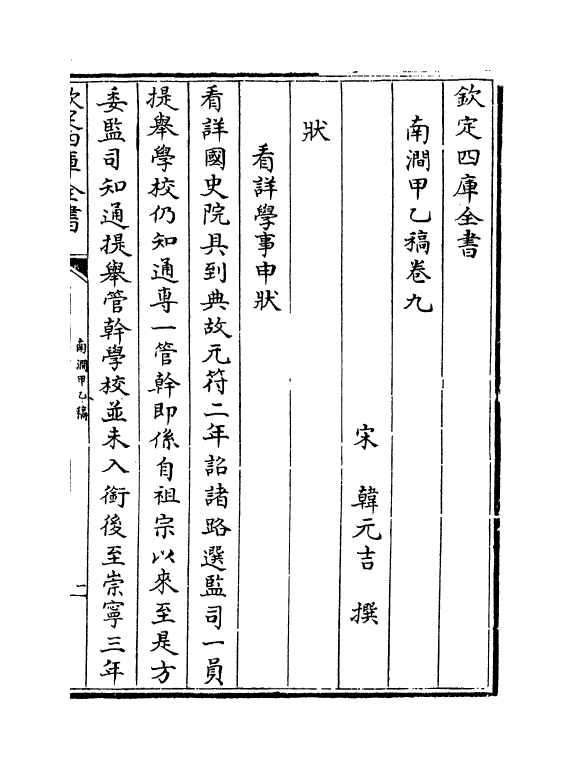 欽定四庫全書
南澗甲乙稿卷九
宋 韓元吉 撰
狀
看詳學事申狀
看詳國史院具到典故元符二年詔諸路選監司一員
提舉學校仍知通專一管幹即係自祖宗以來至是方
委監司知通提舉管幹學校並未入銜後至崇寧三年
欽定四庫全書
南澗甲乙稿
二